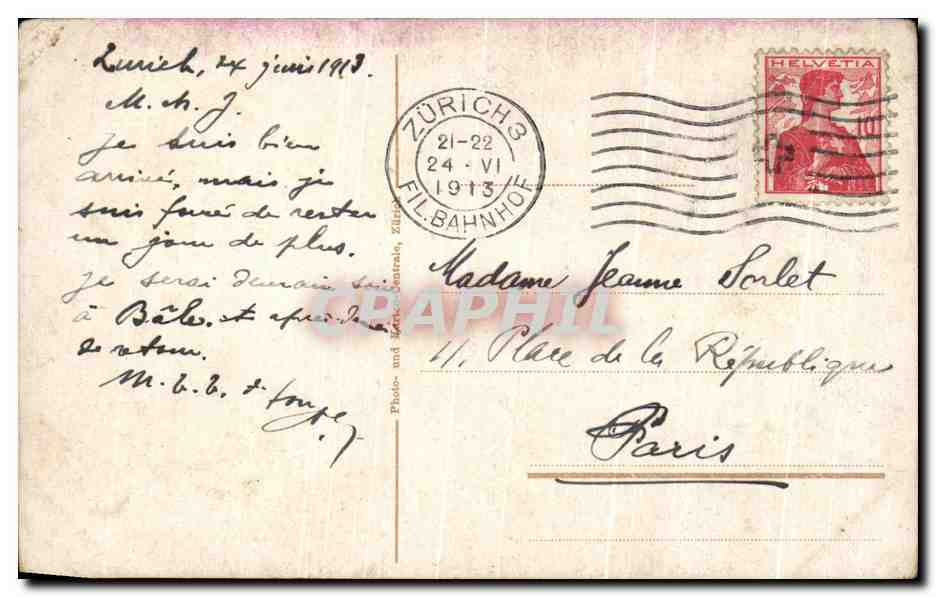 Zurich, 24 juin 1913.
M. A. J.
je suis bien
arrivé, mais je
suis forcé de rester
un jour de plus.
je serai demain soir
à Bâle. et après-demain
de retour.
M. t. t. &
ZÜRICH 3
21-22
24·VI
1913
FIL. BAHNHOF
HELVETIA
10
Madame Jeanne Sorlet
11, Place de la République
Paris
Photo- und Karten-Centrale, Zürich
CPAPHIL